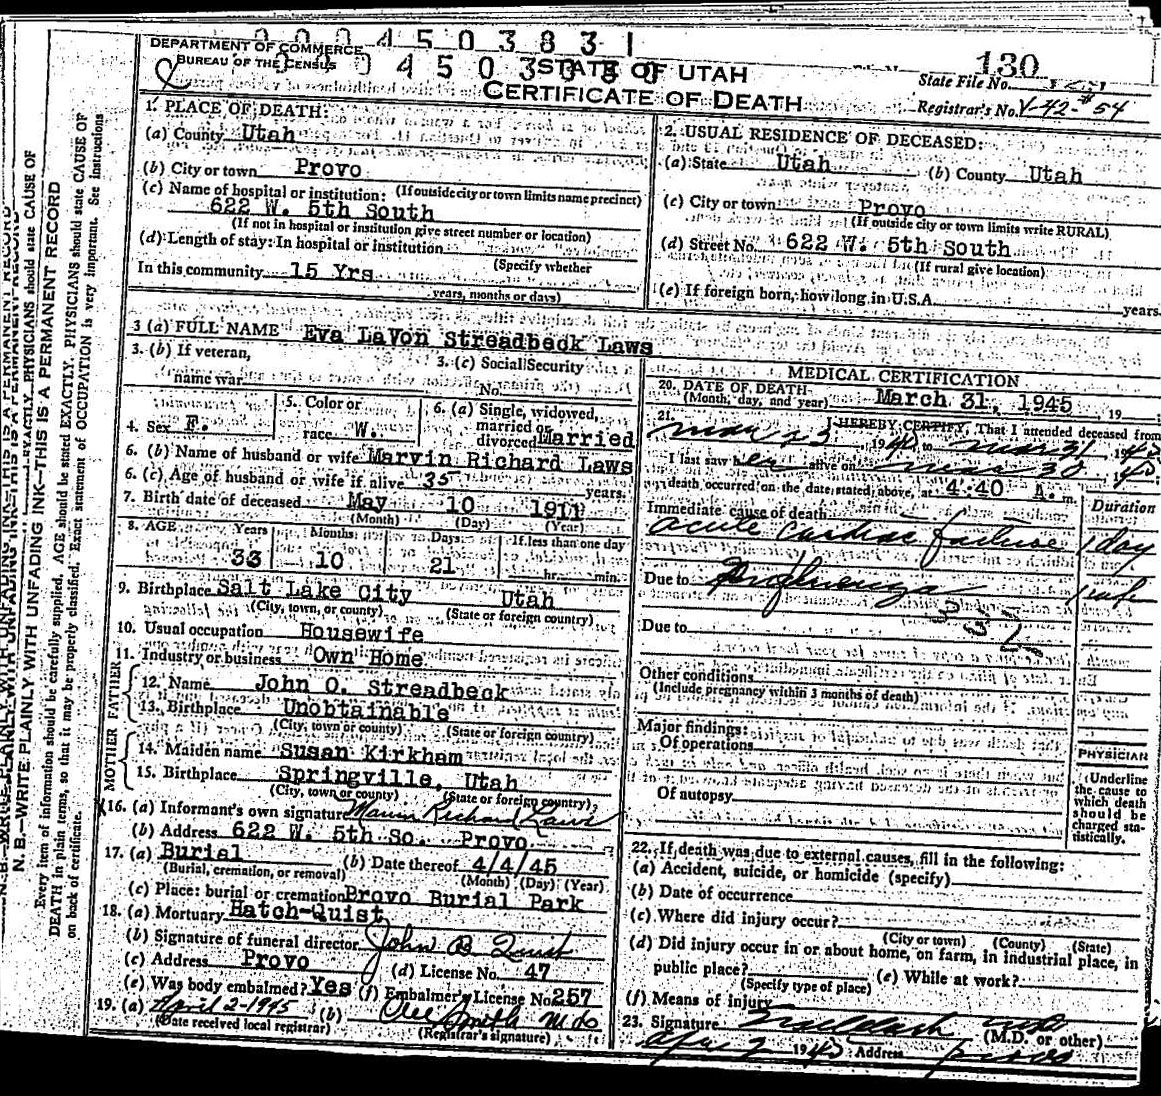 0 0 0 4 5 0 3 8 3 1
DEPARTMENT OF COMMERCE
BUREAU OF THE CENSUS
STATE OF UTAH
CERTIFICATE OF DEATH
130
State File No.
Registrar's No. V-42-#54
1. PLACE OF DEATH:
(a) County Utah
(b) City or town Provo
(If outside city or town limits name precinct)
(c) Name of hospital or institution:
622 W. 5th South
(If not in hospital or institution give street number or location)
(d) Length of stay: In hospital or institution
(Specify whether
In this community 15 Yrs
years, months or days)
2. USUAL RESIDENCE OF DECEASED:
(a) State Utah (b) County Utah
(c) City or town Provo
(If outside city or town limits write RURAL)
(d) Street No. 622 W. 5th South
(If rural give location)
(e) If foreign born, how long in U.S.A. years.
3 (a) FULL NAME Eva LaVon Streadbeck Laws
3. (b) If veteran,
name war
3. (c) Social Security
No.
4. Sex F.
5. Color or
race W.
6. (a) Single, widowed,
married or
divorced Married
6. (b) Name of husband or wife Marvin Richard Laws
6. (c) Age of husband or wife if alive 35 years.
7. Birth date of deceased May 10 1911
(Month) (Day) (Year)
8. AGE Years Months Days If less than one day
33 10 21 hr. min.
9. Birthplace Salt Lake City Utah
(City, town, or county) (State or foreign country)
10. Usual occupation Housewife
11. Industry or business Own Home
FATHER
12. Name John O. Streadbeck
13. Birthplace Unobtainable
(City, town or county) (State or foreign country)
MOTHER
14. Maiden name Susan Kirkham
15. Birthplace Springville, Utah
(City, town or county) (State or foreign country)
16. (a) Informant's own signature Marvin Richard Laws
(b) Address 622 W. 5th So. Provo
17. (a) Burial (b) Date thereof 4/4/45
(Burial, cremation, or removal) (Month) (Day) (Year)
(c) Place: burial or cremation Provo Burial Park
18. (a) Mortuary Hatch-Quist
(b) Signature of funeral director John B Quist
(c) Address Provo (d) License No. 47
(e) Was body embalmed? Yes (f) Embalmer's License No. 257
19. (a) April 2-1945 (b) Smith M D
(Date received local registrar) (Registrar's signature)
MEDICAL CERTIFICATION
20. DATE OF DEATH
(Month, day, and year) March 31, 1945 19
21. I HEREBY CERTIFY, That I attended deceased from
Mar 23 1945 to Mar 31 1945
I last saw her alive on Mar 30 1945
death occurred on the date stated above, at 4:40 A. m.
Duration
Immediate cause of death
acute cardiac failure 1 day
Due to Influenza 1 wk
Due to
Other conditions
(Include pregnancy within 3 months of death)
Major findings:
Of operations
Of autopsy
PHYSICIAN
(Underline
the cause to
which death
should be
charged sta-
tistically.
22. If death was due to external causes, fill in the following:
(a) Accident, suicide, or homicide (specify)
(b) Date of occurrence
(c) Where did injury occur?
(City or town) (County) (State)
(d) Did injury occur in or about home, on farm, in industrial place, in
public place? (e) While at work?
(Specify type of place)
(f) Means of injury
23. Signature
(M.D. or other)
Apr 2 1945 Address Provo
N. B.—WRITE PLAINLY WITH UNFADING INK—THIS IS A PERMANENT RECORD
Every item of information should be carefully supplied. AGE should be stated EXACTLY. PHYSICIANS should state CAUSE OF
DEATH in plain terms, so that it may be properly classified. Exact statement of OCCUPATION is very important. See instructions
on back of certificate.